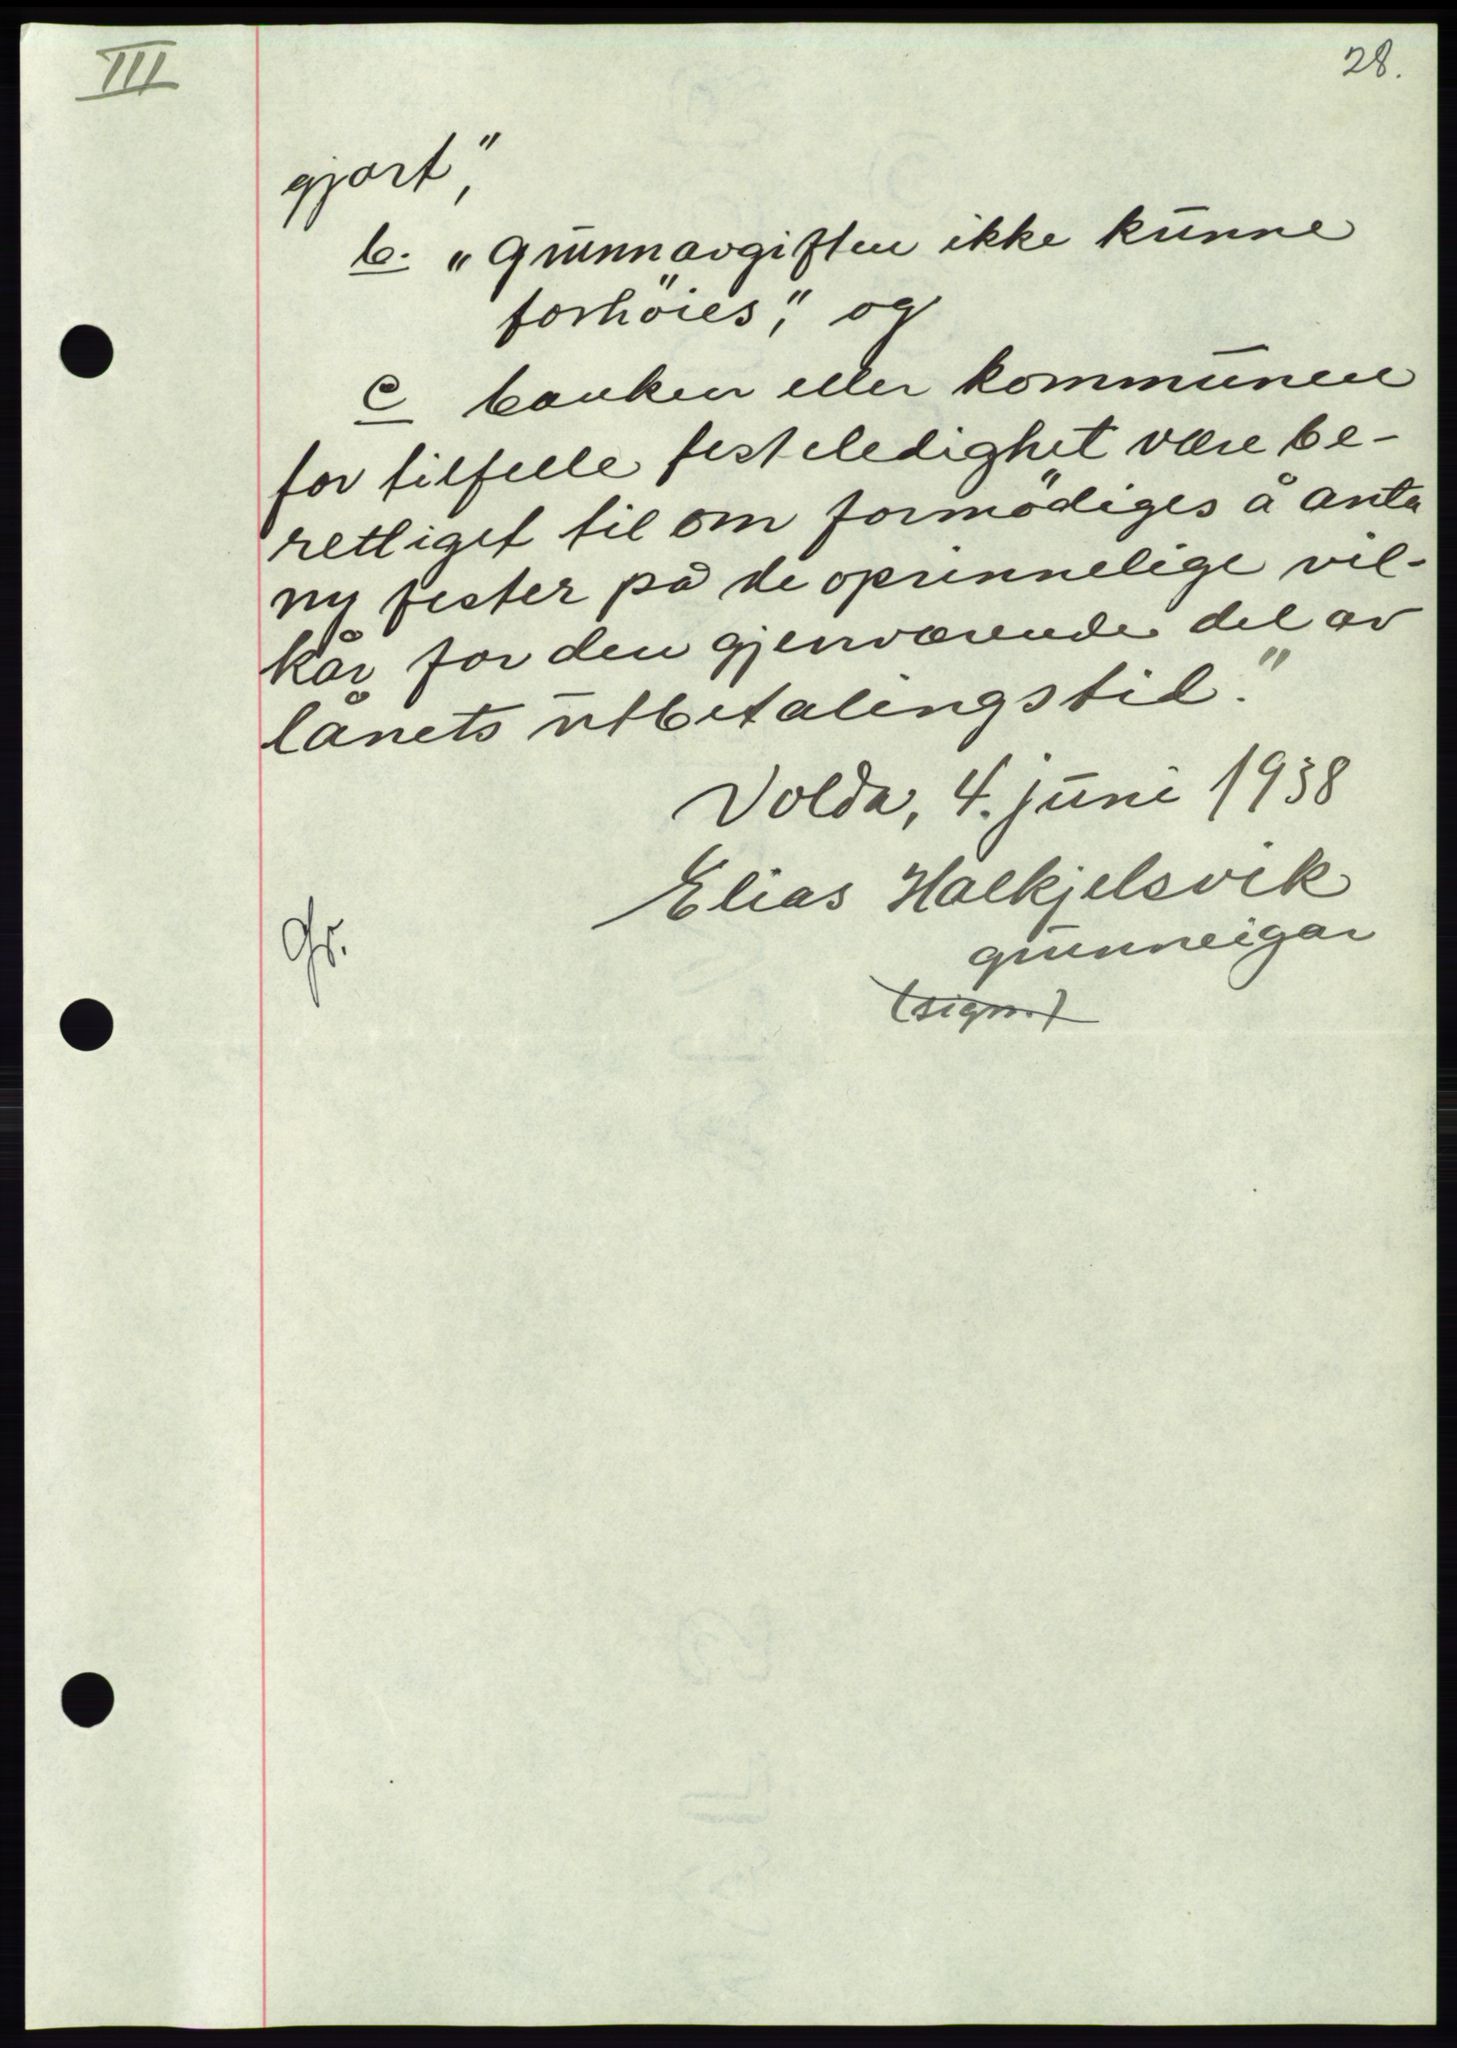 III
28.
gjort,"
b. „Grunnavgiften ikke kunne
forhöies," og
c banken eller kommunen
for tilfelle festeledighet være be-
rettiget til om formödiges å anta
ny fester på de oprinnelige vil-
kår for den gjenværende del av
lånets utbetalingstid."
Volda, 4. juni 1938
Elias Halkjelsvik
grunneigar
(sign.)